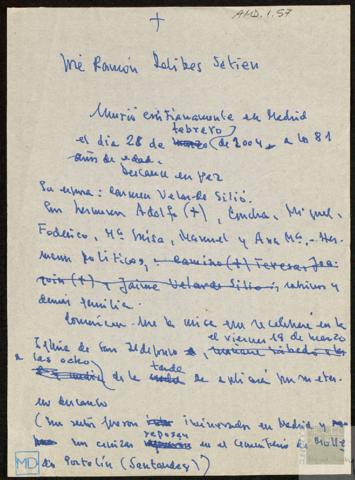 AMD, 1, 57
†
José Ramón Delibes Setien
Murió cristianamente en Madrid
febrero
el día 28 de marzo de 2004, a los 81
años de edad.
Descanse en paz
Su esposa: Carmen Velarde Silió.
Sus hermanos Adolfo (+), Concha, Miguel,
Federico, Mª Luisa, Manuel y Ana Mª.- Her-
manos políticos, Camino (+) Teresa, Joa-
quín (+) y Jaime Velarde Silió, sobrinos y
demás familia.
Comunican que la misa que se celebrará en la
el viernes 19 de marzo
Iglesia de San Ildefonso
a las ocho
y media de la tarde se aplicará por su eter-
no descanso
(Sus restos fueron incinerados en Madrid y
reposan
sus cenizas en el cementerio de Molle-
do Portolín (Santander))
MD